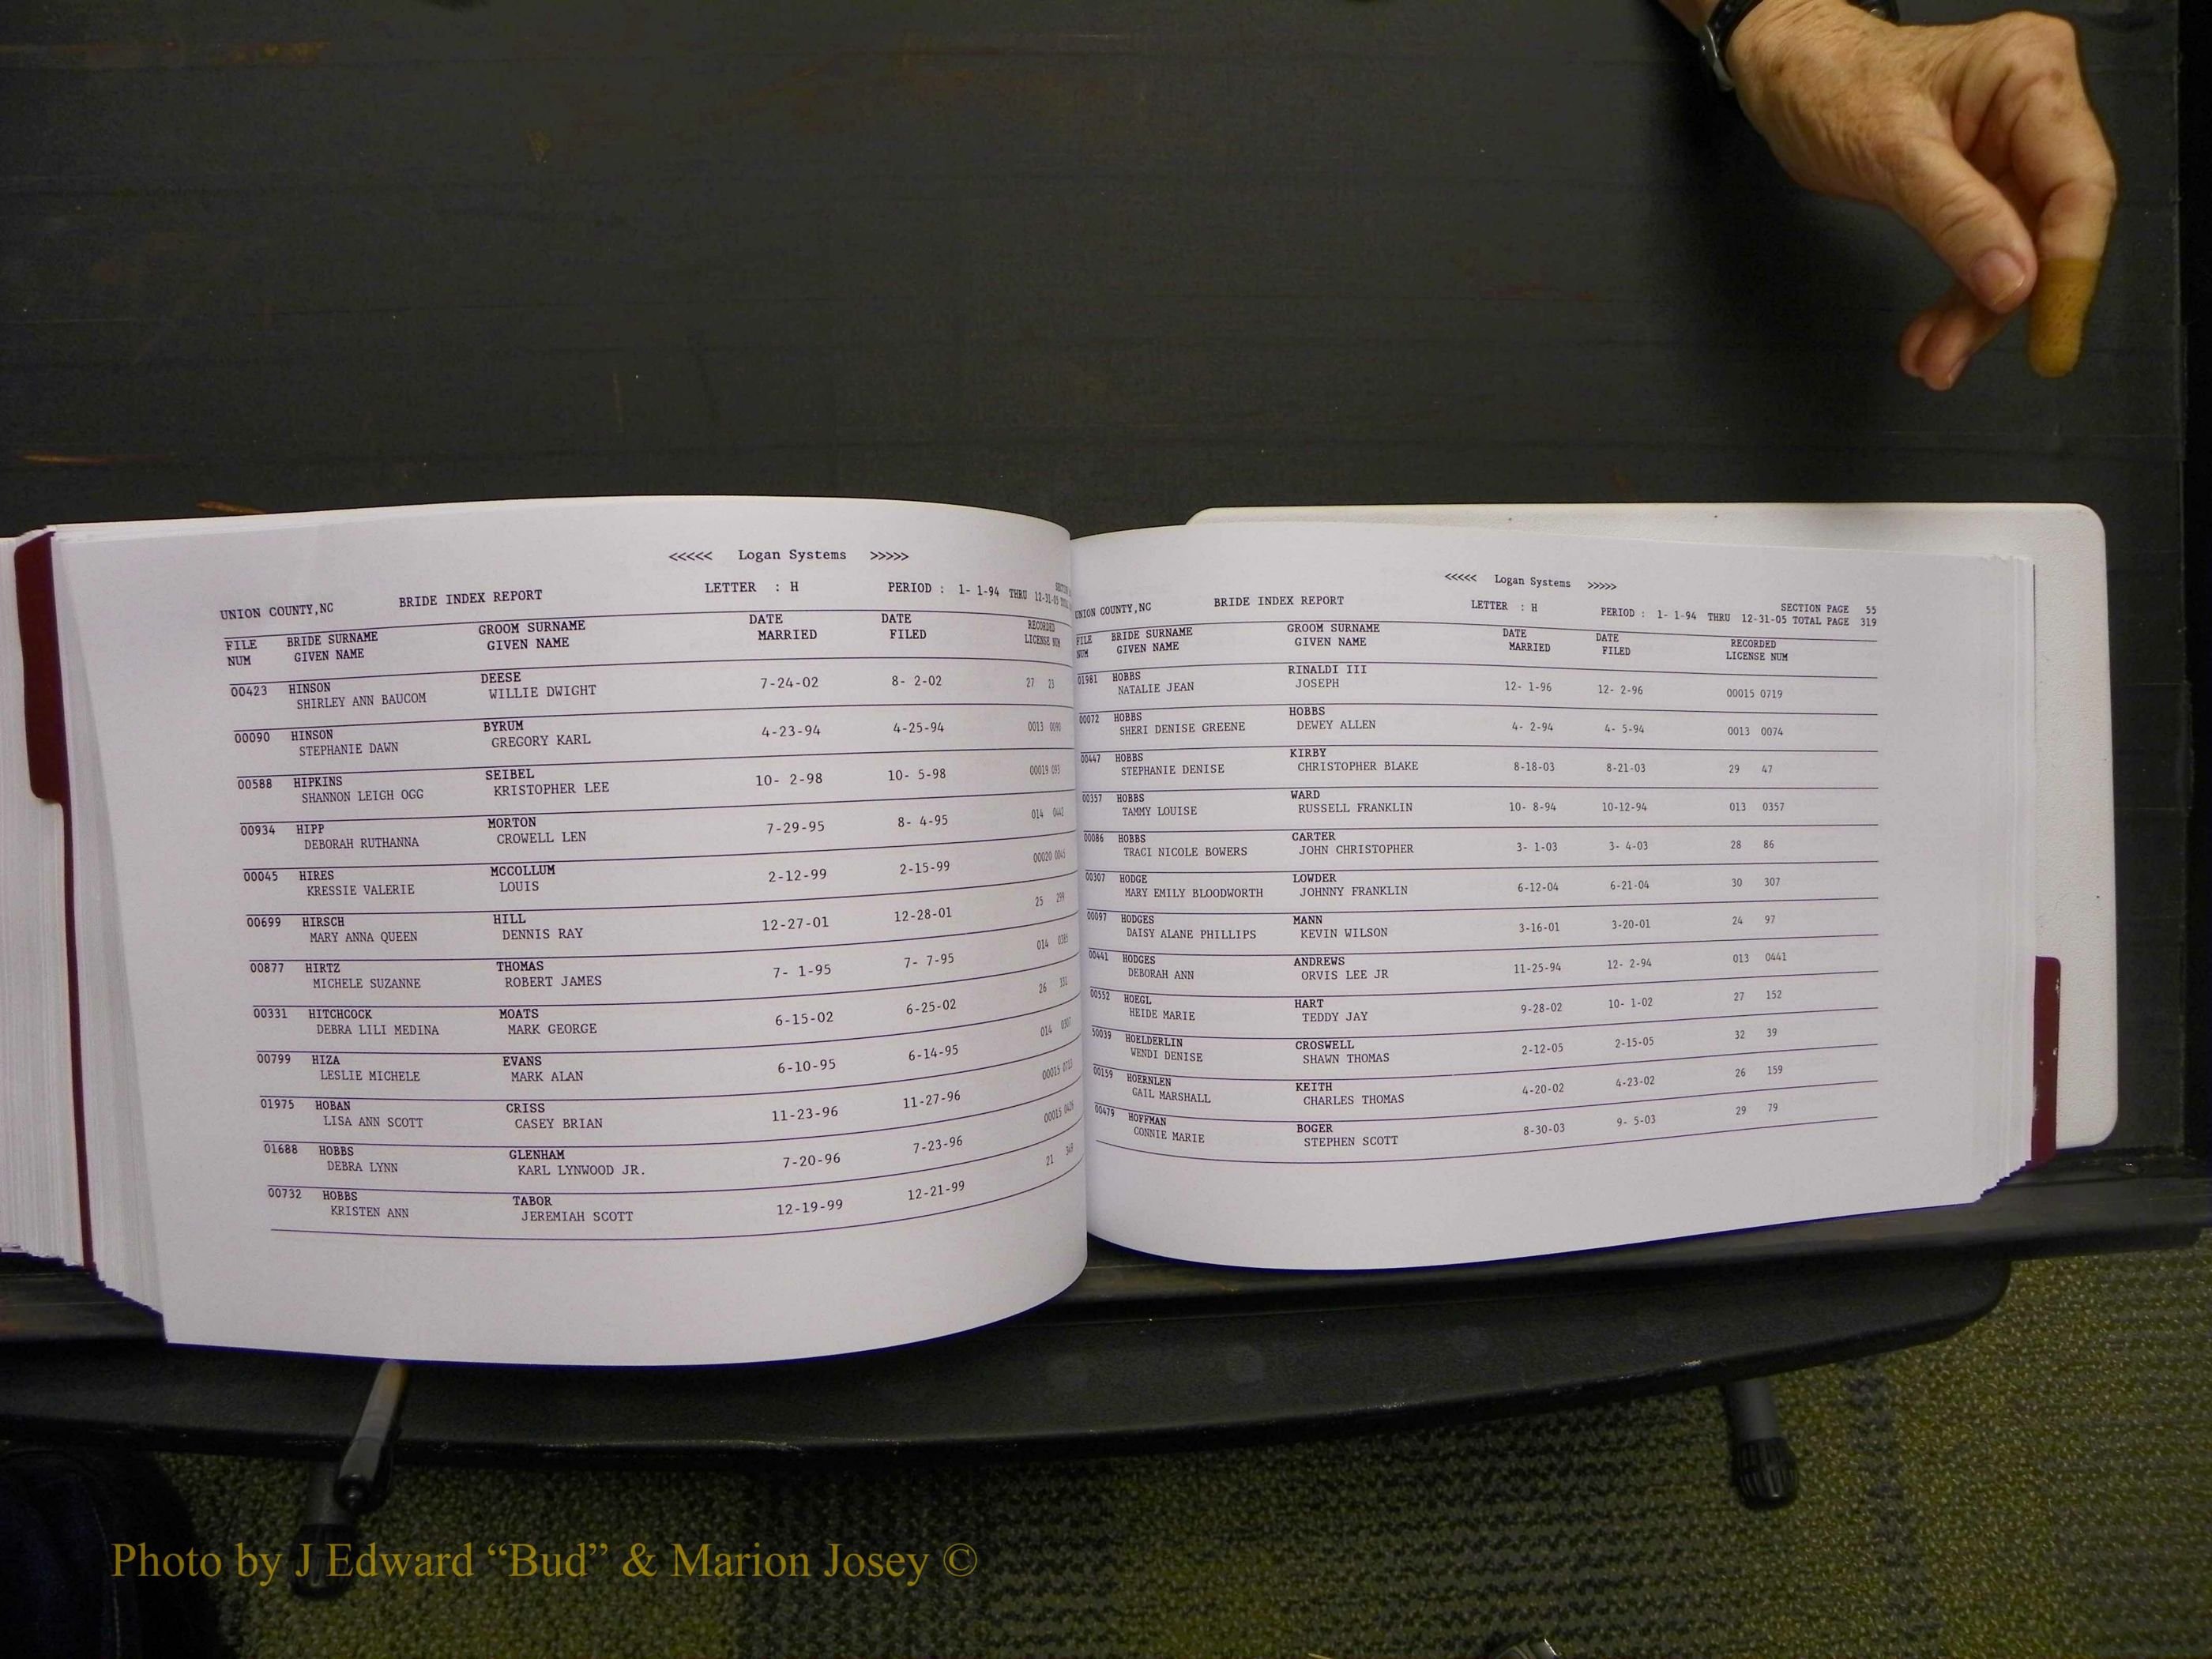 <<<<< Logan Systems >>>>>
UNION COUNTY,NC BRIDE INDEX REPORT LETTER : H PERIOD : 1- 1-94 THRU 12-31-05
FILE BRIDE SURNAME GROOM SURNAME DATE DATE RECORDED
NUM GIVEN NAME GIVEN NAME MARRIED FILED LICENSE NUM
00423 HINSON DEESE 7-24-02 8- 2-02 27 23
SHIRLEY ANN BAUCOM WILLIE DWIGHT
00090 HINSON BYRUM 4-23-94 4-25-94 0013 0090
STEPHANIE DAWN GREGORY KARL
00588 HIPKINS SEIBEL 10- 2-98 10- 5-98 00019
SHANNON LEIGH OGG KRISTOPHER LEE
00934 HIPP MORTON 7-29-95 8- 4-95 014
DEBORAH RUTHANNA CROWELL LEN
00045 HIRES MCCOLLUM 2-12-99 2-15-99 00020 0045
KRESSIE VALERIE LOUIS
00699 HIRSCH HILL 12-27-01 12-28-01 25 299
MARY ANNA QUEEN DENNIS RAY
00877 HIRTZ THOMAS 7- 1-95 7- 7-95 014
MICHELE SUZANNE ROBERT JAMES
00331 HITCHCOCK MOATS 6-15-02 6-25-02 26 331
DEBRA LILI MEDINA MARK GEORGE
00799 HIZA EVANS 6-10-95 6-14-95 014
LESLIE MICHELE MARK ALAN
01975 HOBAN CRISS 11-23-96 11-27-96 00015 0713
LISA ANN SCOTT CASEY BRIAN
01688 HOBBS GLENHAM 7-20-96 7-23-96 00015 0426
DEBRA LYNN KARL LYNWOOD JR.
00732 HOBBS TABOR 12-19-99 12-21-99 21
KRISTEN ANN JEREMIAH SCOTT
<<<<< Logan Systems >>>>>
UNION COUNTY,NC BRIDE INDEX REPORT LETTER : H PERIOD : 1- 1-94 THRU 12-31-05 SECTION PAGE 55
TOTAL PAGE 319
FILE BRIDE SURNAME GROOM SURNAME DATE DATE RECORDED
NUM GIVEN NAME GIVEN NAME MARRIED FILED LICENSE NUM
01981 HOBBS RINALDI III 12- 1-96 12- 2-96 00015 0719
NATALIE JEAN JOSEPH
00072 HOBBS HOBBS 4- 2-94 4- 5-94 0013 0074
SHERI DENISE GREENE DEWEY ALLEN
00447 HOBBS KIRBY 8-18-03 8-21-03 29 47
STEPHANIE DENISE CHRISTOPHER BLAKE
00357 HOBBS WARD 10- 8-94 10-12-94 013 0357
TAMMY LOUISE RUSSELL FRANKLIN
00086 HOBBS CARTER 3- 1-03 3- 4-03 28 86
TRACI NICOLE BOWERS JOHN CHRISTOPHER
00307 HODGE LOWDER 6-12-04 6-21-04 30 307
MARY EMILY BLOODWORTH JOHNNY FRANKLIN
00097 HODGES MANN 3-16-01 3-20-01 24 97
DAISY ALANE PHILLIPS KEVIN WILSON
00441 HODGES ANDREWS 11-25-94 12- 2-94 013 0441
DEBORAH ANN ORVIS LEE JR
00552 HOEGL HART 9-28-02 10- 1-02 27 152
HEIDE MARIE TEDDY JAY
50039 HOELDERLIN CROSWELL 2-12-05 2-15-05 32 39
WENDI DENISE SHAWN THOMAS
00159 HOERNLEN KEITH 4-20-02 4-23-02 26 159
GAIL MARSHALL CHARLES THOMAS
00479 HOFFMAN BOGER 8-30-03 9- 5-03 29 79
CONNIE MARIE STEPHEN SCOTT
Photo by J Edward “Bud” & Marion Josey ©